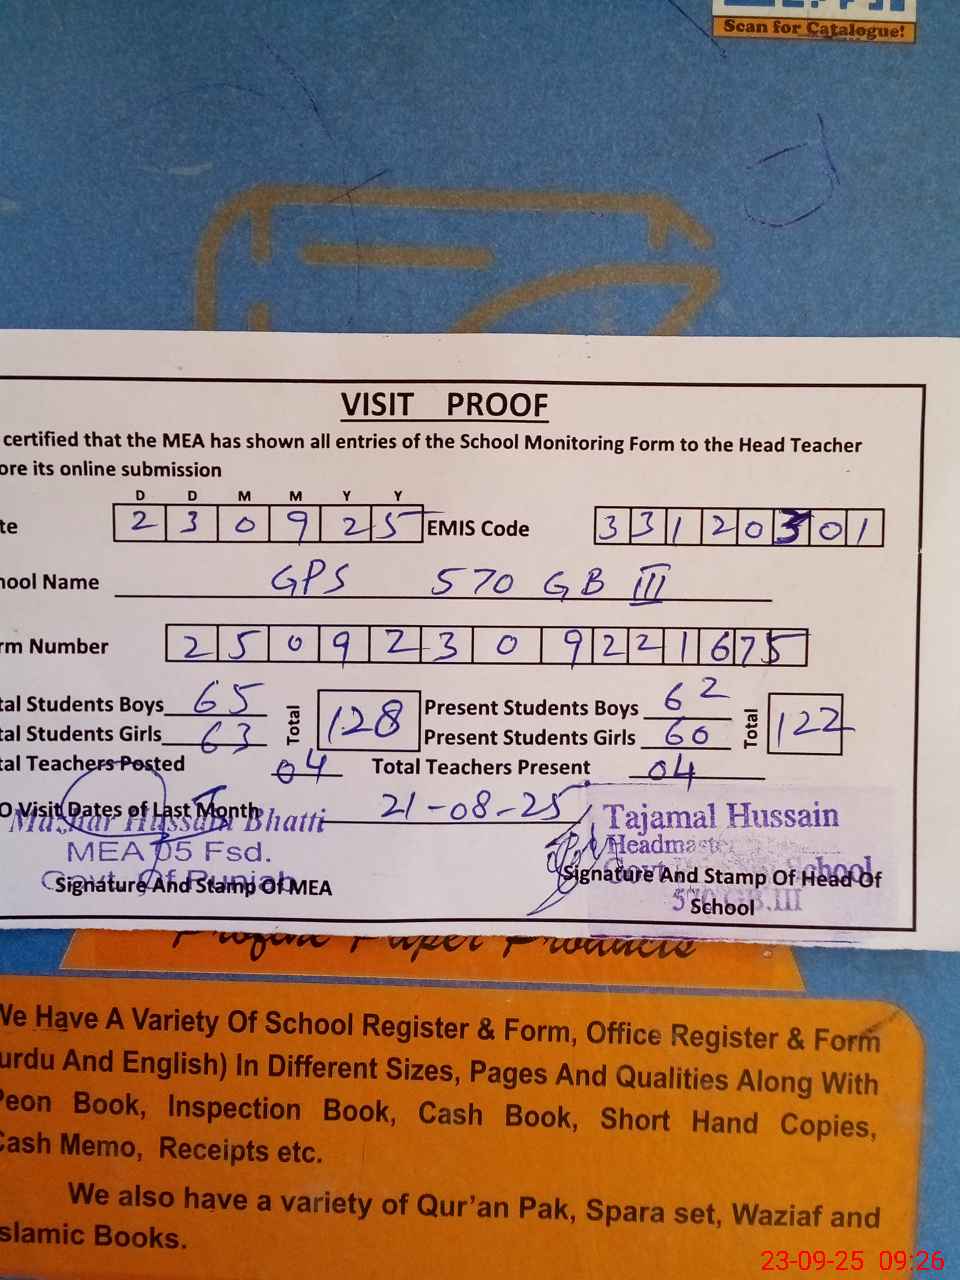 Scan for Catalogue!
VISIT PROOF
certified that the MEA has shown all entries of the School Monitoring Form to the Head Teacher
ore its online submission
D D M M Y Y
te 2 3 0 9 2 5 EMIS Code 3 3 1 2 0 3 0 1
hool Name GPS 570 GB III
rm Number 2 5 0 9 2 3 0 9 2 2 1 6 7 5
tal Students Boys 65 Total 128 Present Students Boys 62 Total 122
tal Students Girls 63 Present Students Girls 60
tal Teachers Posted 04 Total Teachers Present 04
O Visit Dates of Last Month 21-08-25
Mazhar Hussain Bhatti
MEA 05 Fsd.
Govt. Of Punjab
Signature And Stamp Of MEA
Tajamal Hussain
Headmaster
Govt. School
Signature And Stamp Of Head Of
School
570 GB.III
Paper Products
We Have A Variety Of School Register & Form, Office Register & Form
urdu And English) In Different Sizes, Pages And Qualities Along With
Peon Book, Inspection Book, Cash Book, Short Hand Copies,
Cash Memo, Receipts etc.
We also have a variety of Qur'an Pak, Spara set, Waziaf and
slamic Books.
23-09-25 09:26